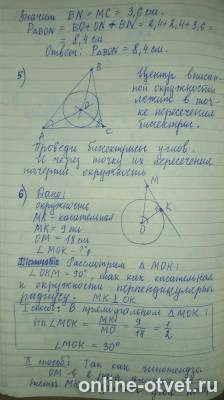 Значит BN = MC = 3,6 см.
P_ABON = BO + ON + BN = 2,4 + 2,4 + 3,6 =
= 8,4 см
Ответ: P_ABON = 8,4 см.
5)
B
O
A
C
Центр вписан-
ной окружности
лежит в точ-
ке пересечения
биссектрис.
Проведи биссектрисы углов.
И через точку их пересечения
начерти окружность
6) Дано:
окружность
MK - касательная
MK = 9 см
OM = 18 см
∠MOK - ?
M
K
O
Рассмотрим △ MOK:
∠OKM = 90°, так как касательная
к окружности перпендикулярна
радиусу. MK ⊥ OK
I способ: В прямоугольном △ MOK:
sin ∠MOK = MK/MO = 9/18 = 1/2
∠MOK = 30°
II способ: Так как гипотенуза
OM в 2 раза
online-otvet.ru